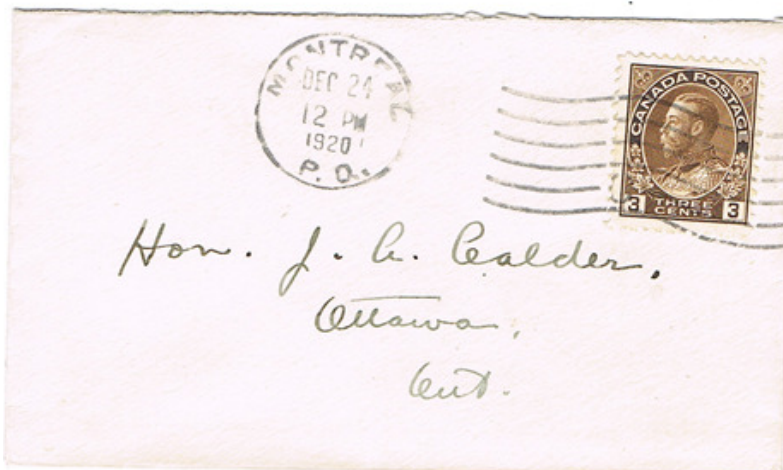 MONTREAL
DEC 24
12 PM
1920
P. Q.
CANADA POSTAGE
3 THREE CENTS 3
Hon. J. A. Calder,
Ottawa,
Ont.